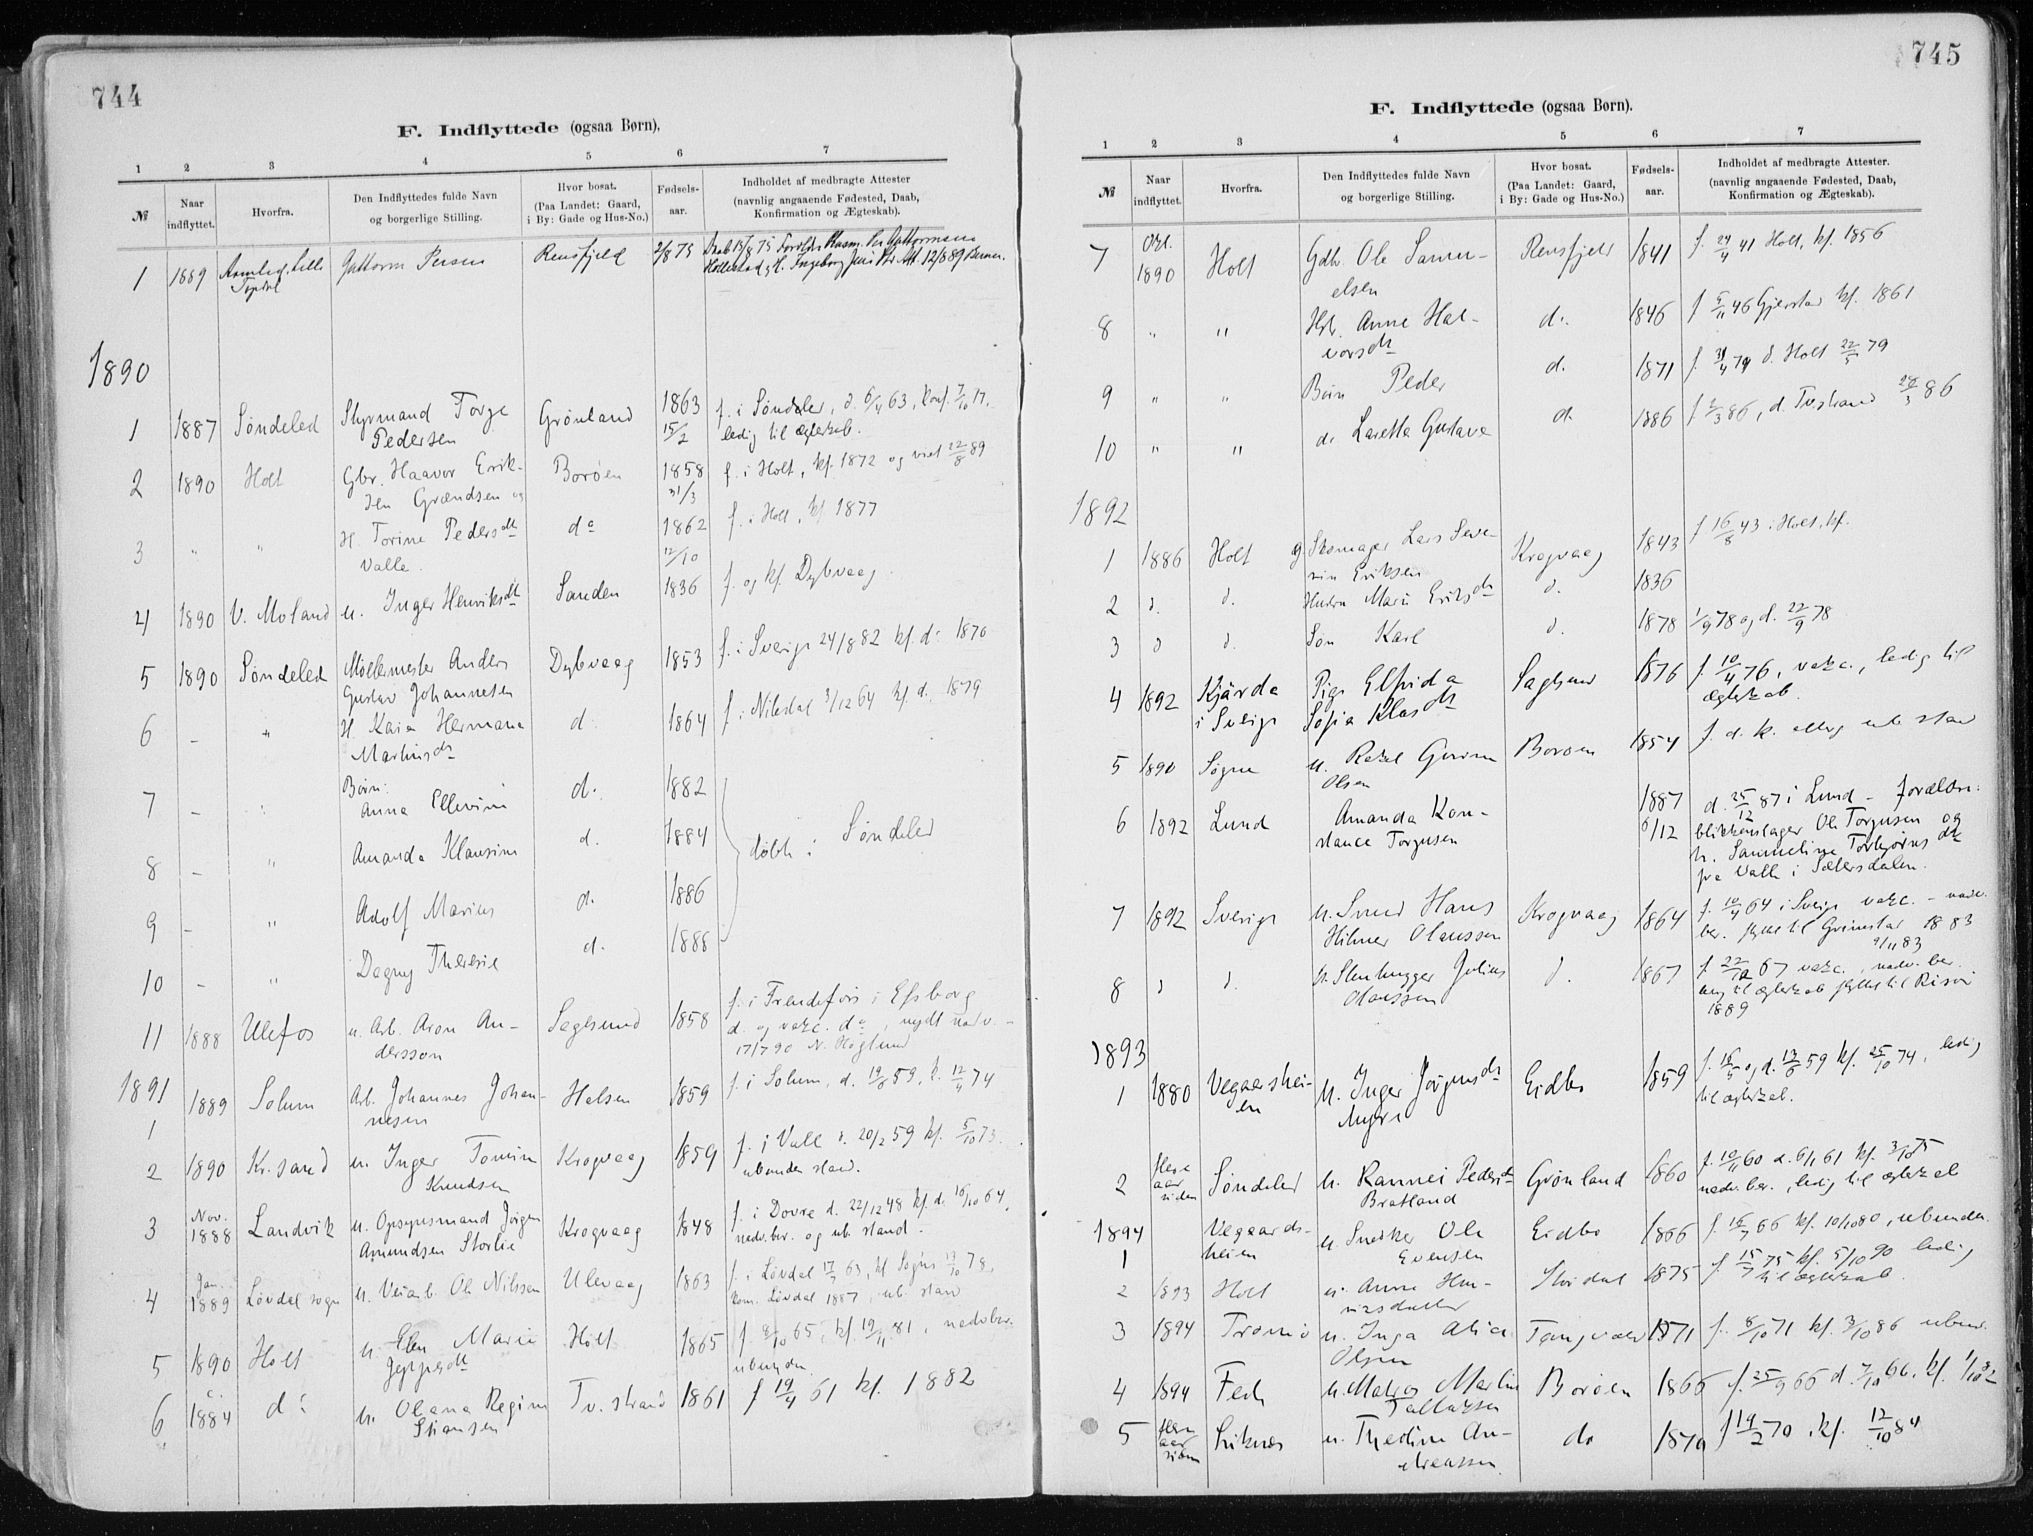 744
F. Indflyttede (ogsaa Børn).
1 2 3 4 5 6 7
№ Naar indflyttet. Hvorfra. Den Indflyttedes fulde Navn og borgerlige Stilling. Hvor bosat. (Paa Landet: Gaard, i By: Gade og Hus-No.) Fødsels-aar. Indholdet af medbragte Attester (navnlig angaaende Fødested, Daab, Konfirmation og Ægteskab).
1 1889 Guttorm Persen Rensfjeld 2/8 75
1890
1 1887 Søndeled Styrmand Torge Grönland 1863 f. i Søndeled, d. 6/4 63, konf. 7/10 77.
Pedersen 15/2 ledig til ægteskab.
2 1890 Holt Gbr. Haavor Erik- Borøen 1858 f. i Holt, kf. 1872 og viet 22/8 89
sen Grændsen og 31/3
3 " " H. Torine Pedersdt do 1862 f. i Holt, kf 1877
Valle. 12/10
4 1890 V. Moland u. Inger Henriksdt Sanden 1836 f. og kf. Dybvaag.
5 1890 Søndeled Møllemester Anders Dybvaag 1853 f. i Sverige 24/8 82 kf. do 1870
Gustav Johannesen
6 - " H. Kaia Hermana d. 1864 f. i Nilsdal 3/12 64 kf. d. 1879
Martinsdt
7 - " Børn: d. 1882
Anna Ellevine
8 - " Amanda Klausine d. 1884 døbt i Søndeled
9 - " Adolf Marius d. 1886
10 - " Dagny Theresie d. 1888
11 1888 Ulefos u. Arb. Aron An- Saglsund 1858 f. i Frendefors i Elfsborg
dersson d. og vakc. do, nydt nadv. -
17/7 90 N. Höglund
1891
1 1889 Solum Arb. Johannes Johan- Halsen 1859 f. i Solum, d. 19/6 59, k. 12/4 74
nesen
2 1890 Kr.sand u. Inger Tomine Krogvaag 1859 f. i Valle d. 20/2 59 kf. 5/10 73.
Knudsen ubunden stand.
3 Nov. 1888 Landvik u. Opsynsmand Jörgen Krogvaag 1848 f. i Dovre d. 22/12 48 kf. d. 16/10 64,
Amundsen Storlie nadv.ber. og ub. stand.
4 Jan. 1889 Løvdal sogn u. Veiarb. Ole Nilssen Ulevaag 1863 f. i Løvdal 17/7 63, kf Sogns 13/10 78,
kom. Løvdal 1887, ub. stand
5 1890 Holt u. Elen Marie Holt 1865 f. 8/10 65, kf. 19/11 81, nadvber.
Jeppesdt ubunden
6 c. 1884 do u. Olana Regine Tv.strand 1861 f 19/4 61 kf. 1882
Stiansen
745
F. Indflyttede (ogsaa Børn).
1 2 3 4 5 6 7
№ Naar indflyttet. Hvorfra. Den Indflyttedes fulde Navn og borgerlige Stilling. Hvor bosat. (Paa Landet: Gaard, i By: Gade og Hus-No.) Fødsels-aar. Indholdet af medbragte Attester. (navnlig angaaende Fødested, Daab, Konfirmation og Ægteskab).
7 Okt. 1890 Holt Gdbr. Ole Samu- Rensfjeld 1841 f. 24/4 41 Holt, kf. 1856
elsen
8 " " Hst. Anne Hal- d. 1846 f 5/11 46 Gjerstad kf. 1861
vorsdt
9 " " Børn Peder d. 1871 d. Holt 22/5 79
10 " " d. Laretta Gustava d. 1886 f 2/3 86, d. Tvstrand 28/3 86
1892
1 1886 Holt g. Skomager Lars Seve- Krogvaag 1843 f 16/8 43 i Holt, kf.
rin Eriksen
2 d. d. Hustru Marie Eriksdt d. 1836
3 d d. Søn Karl d. 1878 1/9 78 og d. 22/9 78
4 1892 Kjärda Pige Elfrida Saglsund 1876 f. 10/4 76, vakc., ledig til
i Sverige Sofia Klasdt ægteskab.
5 1890 Søgne u. Rakel Gurine Borøen 1854
Olsen
6 1892 Lund Amanda Kon- 1887 d. 25/12 87 i Lund - forældre:
stance Torgusen 6/12 blikkenslager Ole Torgusen og
h. Sammeline Torbjørnsdt
fra Valle i Sætersdalen.
7 1892 Sverige u. Svend Hans Krogvaag 1864 f. 10/4 64 i Sverige vakc. - nadv.
Hilmer Olaussen ber. flyttet til Grimstad 1883
9/11 83
8 d d. u. Stenhugger Julius d. 1867 f. 22/12 67 vakc., nadv. ber.
Olaussen til ægteskab flyttet til Risør
1889
1893
1 1880 Vegaarshei- u. Inger Jörgensdt Eidbo 1859 f. 16/5 og d. 13/6 59 kf. 25/10 74, ledig
en Myre til ægteskab.
2 flere aar siden Søndeled u. Rannei Pedersdt Grönland 1860 f. 10/11 60 d. 6/1 61 kf. 3/10 75
Bratland nadv.ber., ledig til ægteskab
1894
1 Vegaards- u. Snedker Ole Eidbo 1866 f. 16/7 66 kf. 10/10 80, ubunden.
heien Evensen
2 1893 Holt u. Anne Hen- 1875 f. 15/7 75 kf. 5/10 90 ledig
riksdatter til ægteskab
3 1894 Tromö u. Inga Alice Tangvald 1871 f. 8/10 71 kf. 3/10 86 ubund.
Olsen
4 1894 Feda u. Matros Martin Borøen 1866 f. 25/9 66 d. 7/10 66. kf. 1/10 82
Tallaksen
5 flere aar siden u. Thedine An- do 1870 f 19/2 70. kf. 12/10 84
dreassen